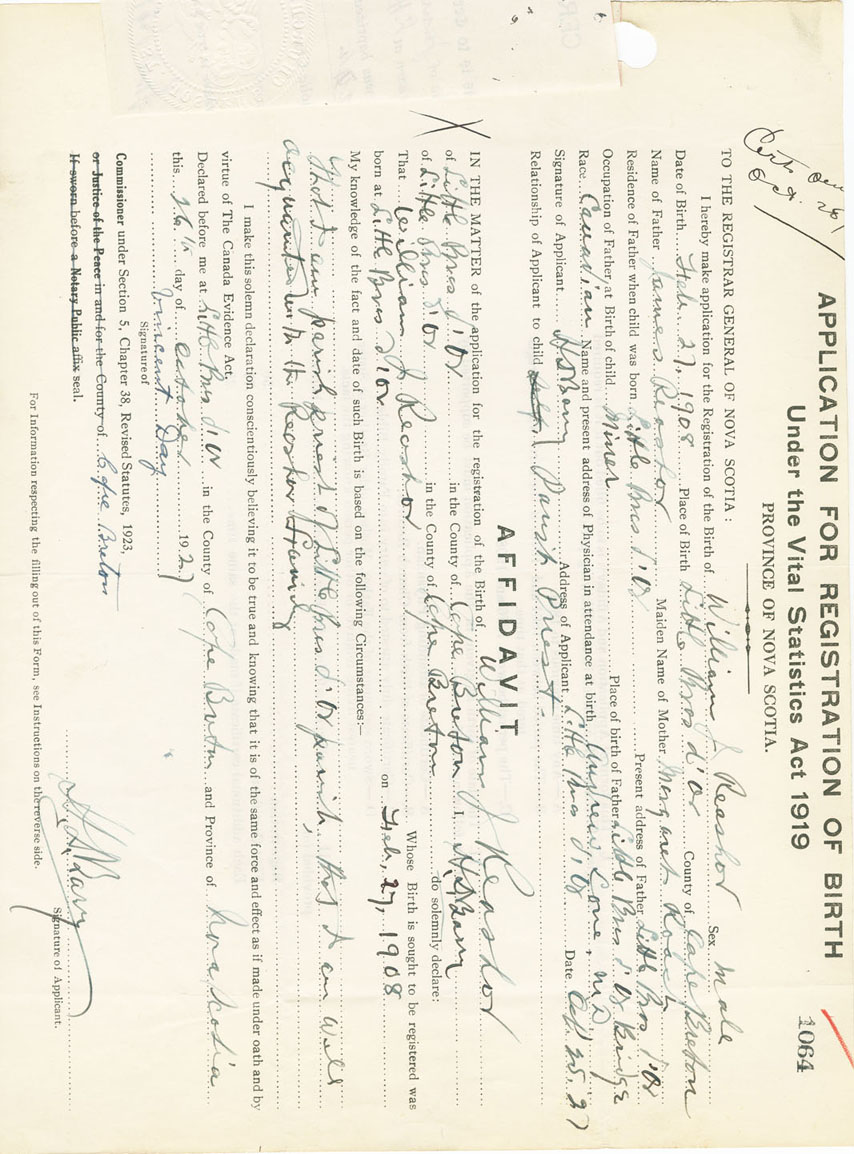 APPLICATION FOR REGISTRATION OF BIRTH
1064
Under the Vital Statistics Act 1919
PROVINCE OF NOVA SCOTIA.
TO THE REGISTRAR GENERAL OF NOVA SCOTIA:
I hereby make application for the Registration of the Birth of William J Reashor Sex male
Date of Birth Feb. 27, 1908 Place of Birth Little Bras d'Or County of Cape Breton
Name of Father James Reashor Maiden Name of Mother Margaret
Residence of Father when child was born Little Bras d'Or Present address of Father Little Bras d'Or
Occupation of Father at Birth of child Miner Place of birth of Father Little Bras d'Or Bridge
Race Canadian Name and present address of Physician in attendance at birth MD
Signature of Applicant Address of Applicant Little Bras d'Or Date Oct 25, 27
Relationship of Applicant to child Parish Priest.
AFFIDAVIT
IN THE MATTER of the application for the registration of the Birth of William J Reashor
of Little Bras d'Or in the County of Cape Breton I,
of Little Bras d'Or in the County of Cape Breton do solemnly declare:
That William J Reashor Whose Birth is sought to be registered was
born at Little Bras d'Or on Feb, 27, 1908
My knowledge of the fact and date of such Birth is based on the following Circumstances:—
that I am parish priest of Little Bras d'Or parish, that I am well
acquainted with the Reashor Family
I make this solemn declaration conscientiously believing it to be true and knowing that it is of the same force and effect as if made under oath and by
virtue of The Canada Evidence Act.
Declared before me at Little Bras d'Or in the County of Cape Breton and Province of Nova Scotia
this 26th day of October 1927
Vincent Day
Signature of
Commissioner under Section 5, Chapter 38, Revised Statutes, 1923,
or Justice of the Peace in and for the County of Cape Breton
If sworn before a Notary Public affix seal.
Signature of Applicant.
For Information respecting the filling out of this Form, see Instructions on the reverse side.